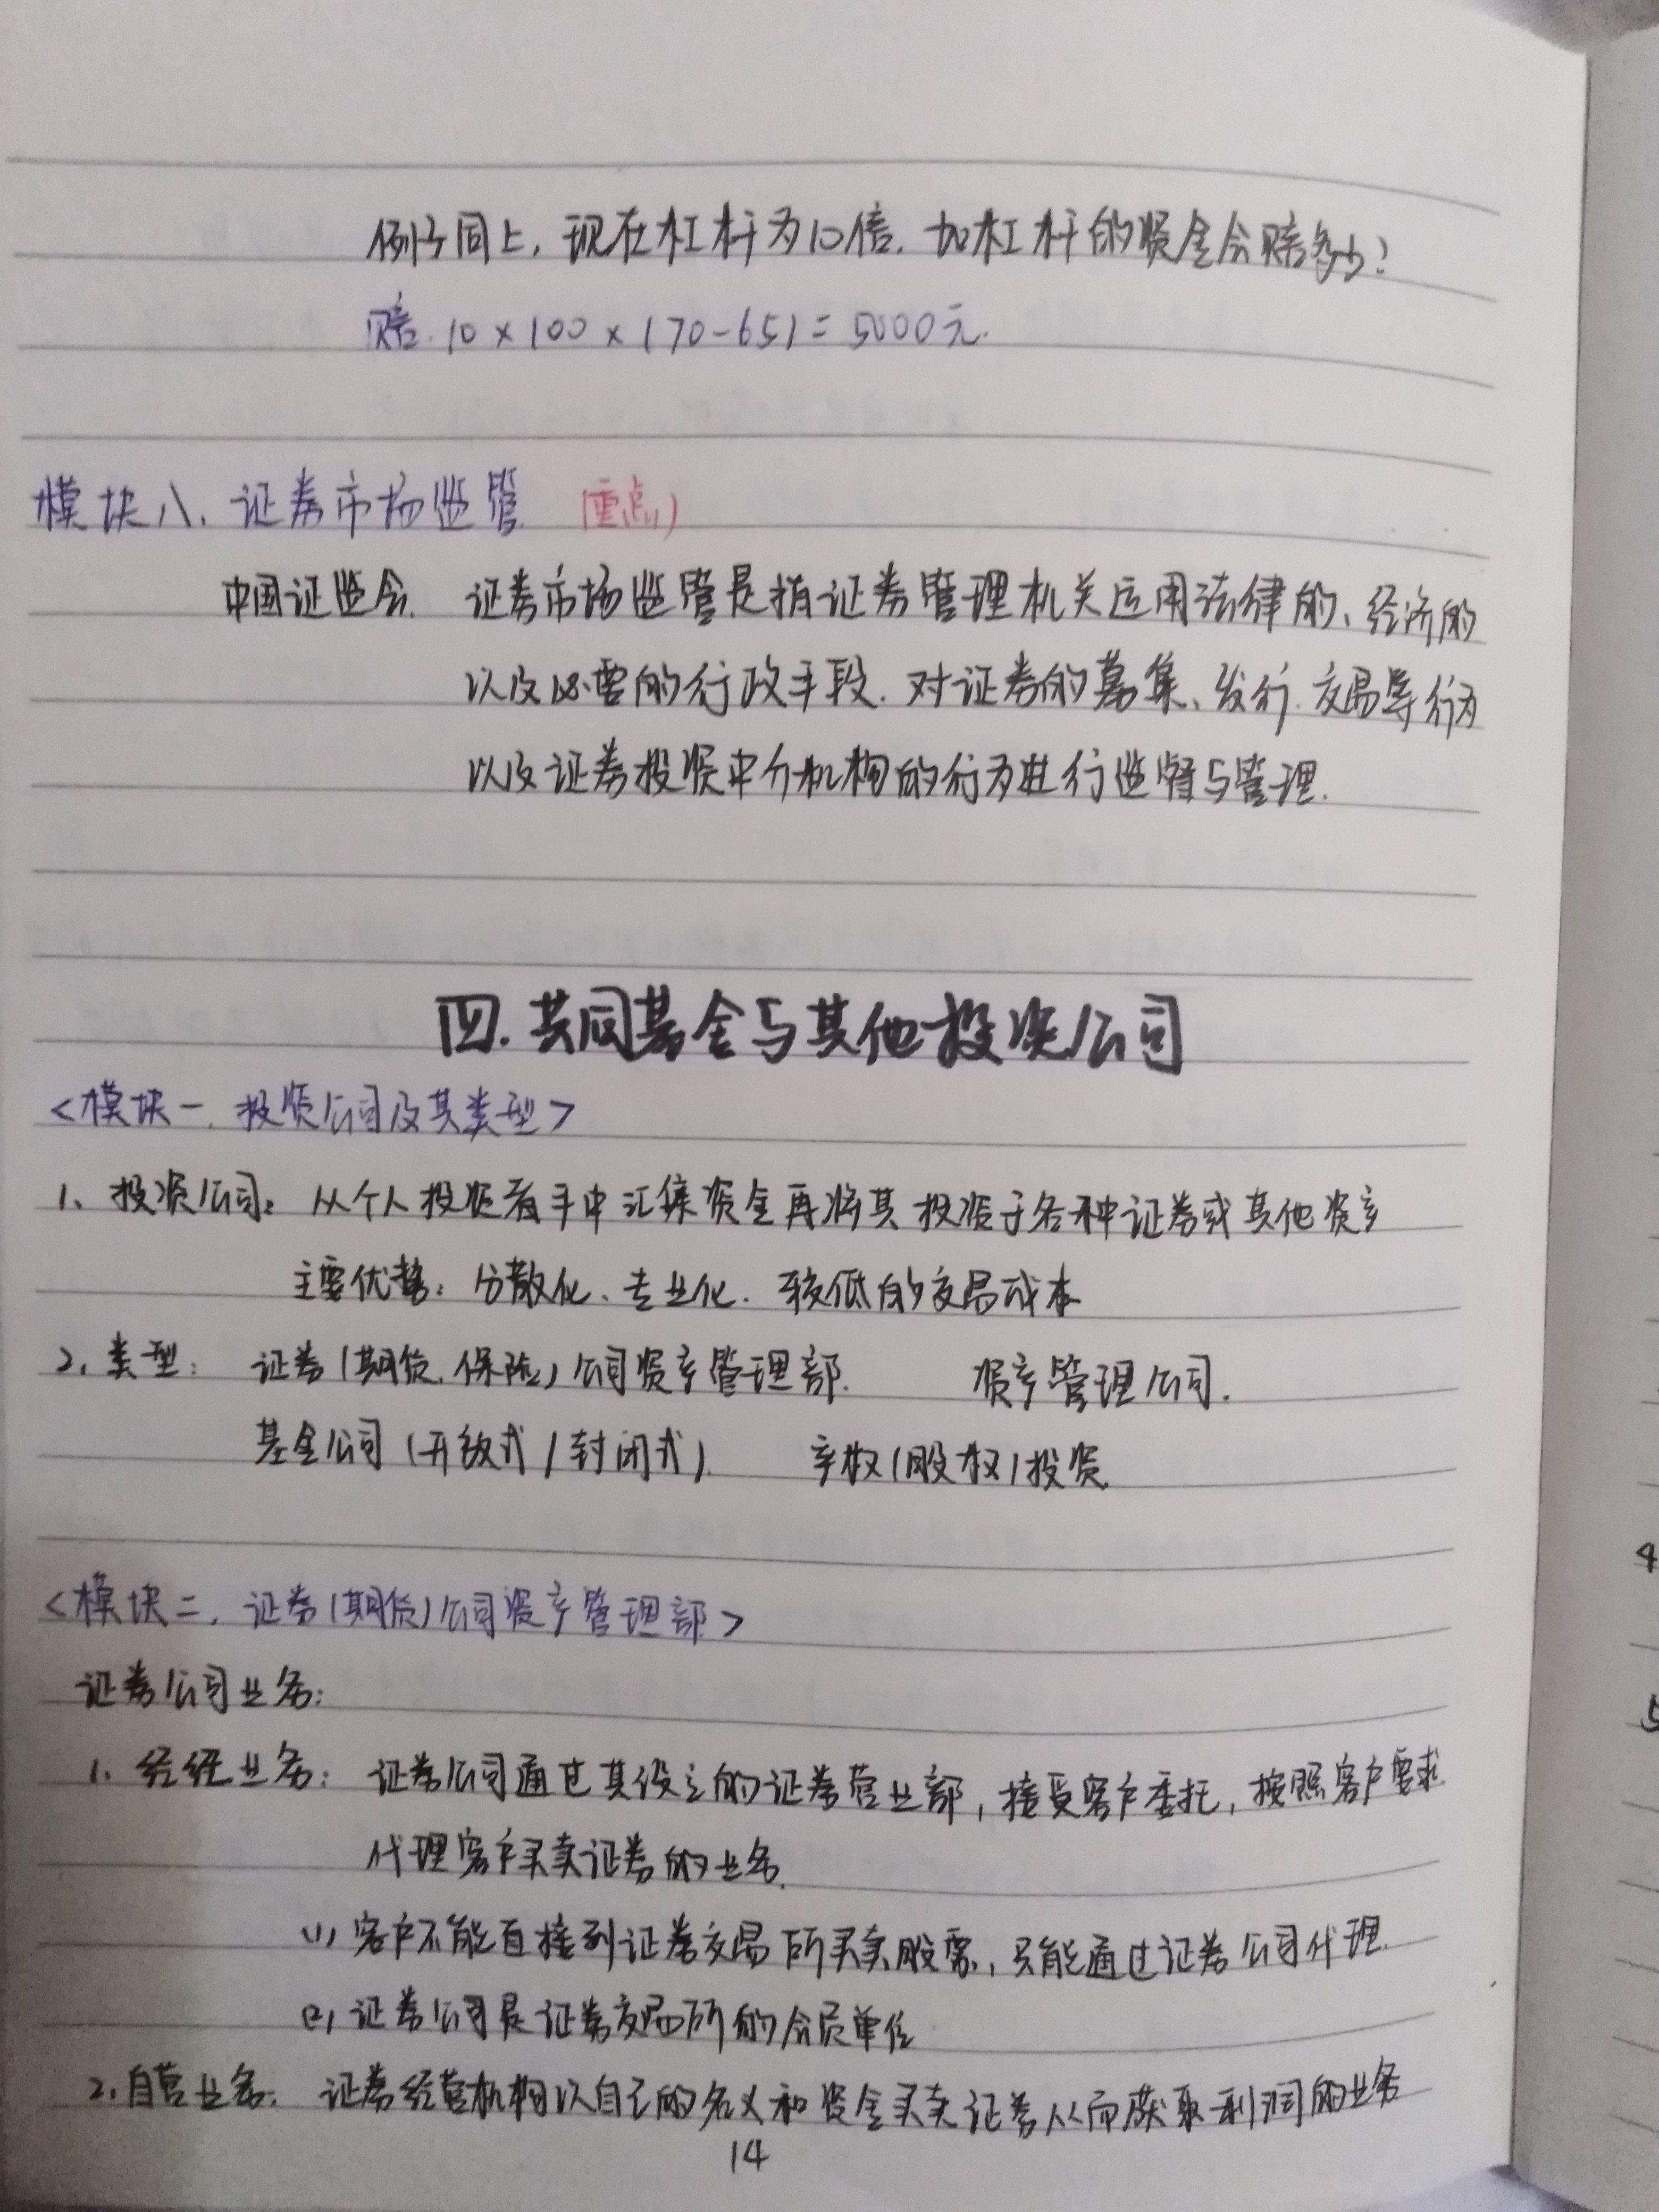 例子同上,现在杠杆为10倍.加杠杆的资金会赔多少?
赔.10×100×(70-65)=5000元.
模块八、证券市场监管 (重点)
中国证监会. 证券市场监管是指证券管理机关运用法律的、经济的
以及必要的行政手段.对证券的募集、发行.交易等行为
以及证券投资中介机构的行为进行监督与管理.
四.共同基金与其他投资公司
<模块一.投资公司及其类型>
1、投资公司:从个人投资者手中汇集资金再将其投资于各种证券或其他资产
主要优势:分散化、专业化.较低的交易成本
2.类型: 证券(期货.保险)公司资产管理部. 资产管理公司.
基金公司(开放式/封闭式). 产权(股权)投资.
<模块二.证券(期货)公司资产管理部>
证券公司业务:
1、经纪业务:证券公司通过其设立的证券营业部,接受客户委托,按照客户要求
代理客户买卖证券的业务.
(1)客户不能直接到证券交易所买卖股票,只能通过证券公司代理.
(2)证券公司是证券交易所的会员单位
2.自营业务:证券经营机构以自己的名义和资金买卖证券从而获取利润的业务
14
4
5